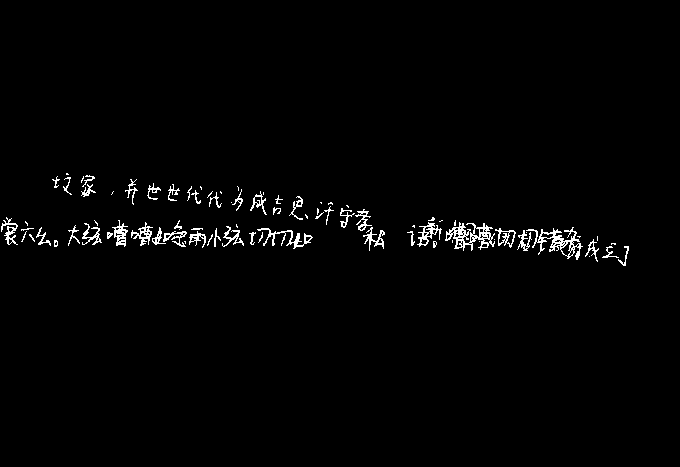 坟冢,并世世代代为成吉思汗守孝
裳六幺。大弦嘈嘈如急雨小弦切切如私 语。嘈嘈切切错杂
成立了